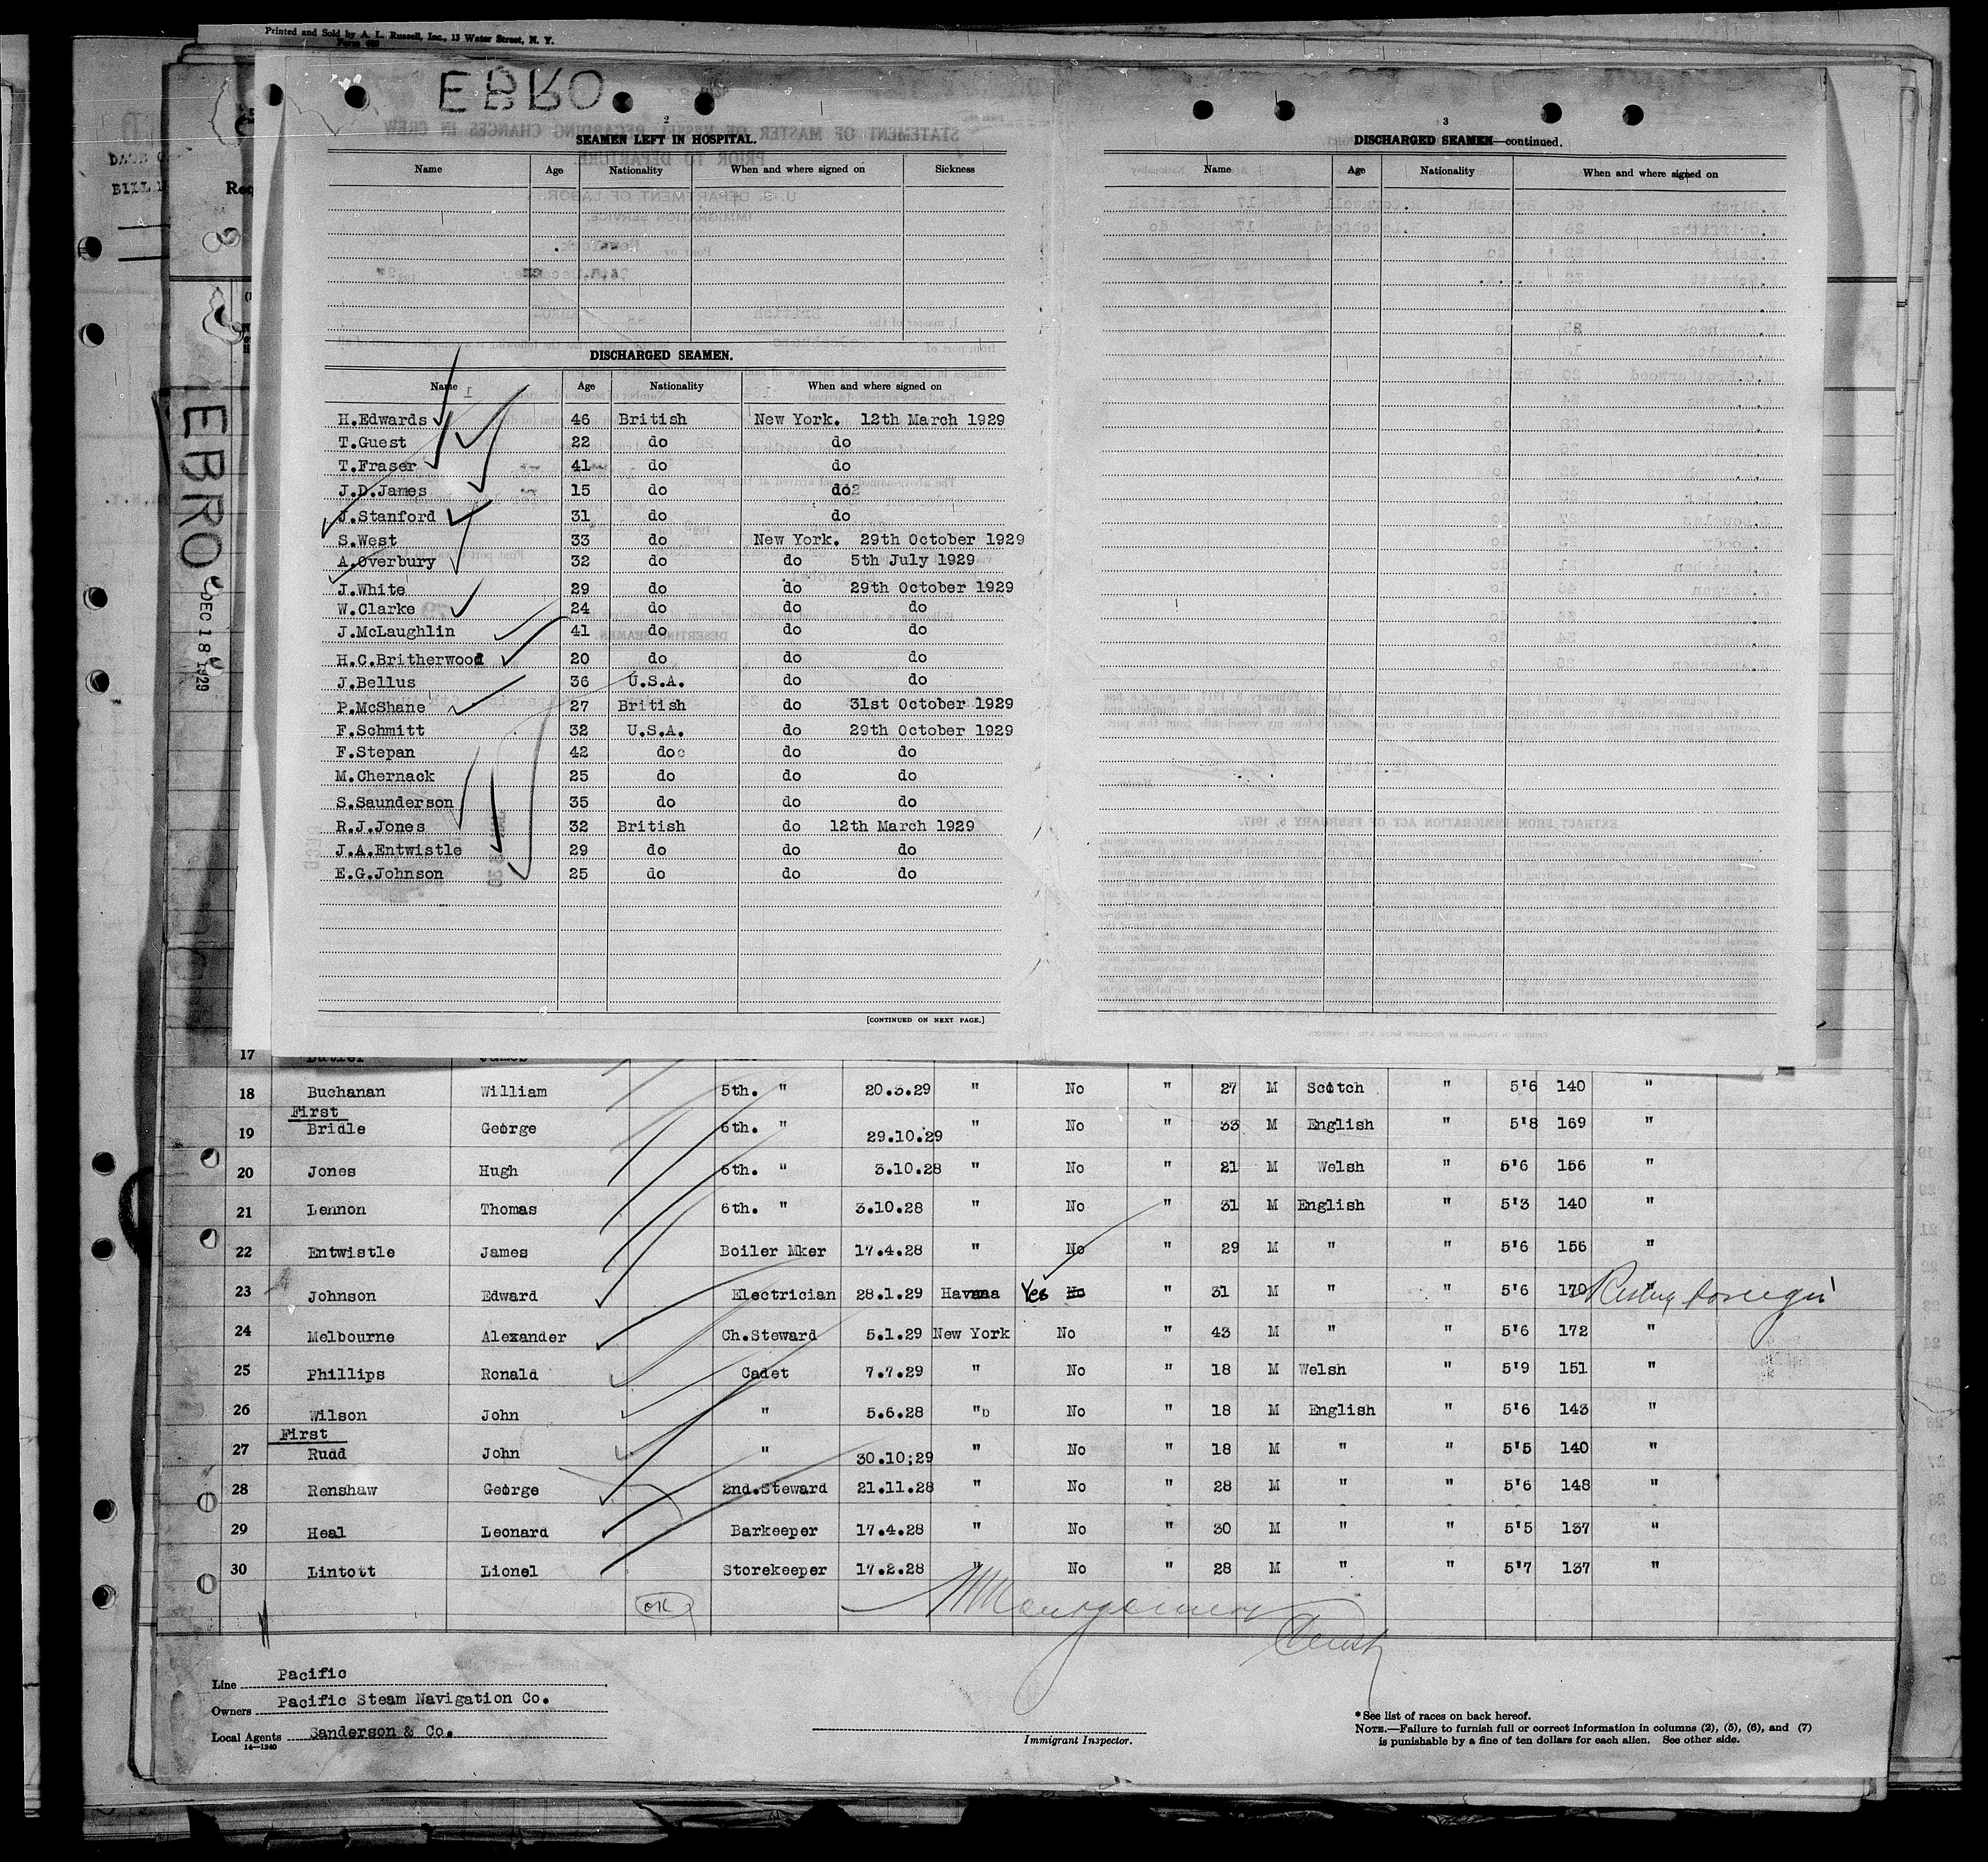 Printed and Sold by A. L. Russell, Inc., 13 Water Street, N. Y.
EBRO
2
SEAMEN LEFT IN HOSPITAL.
Name Age Nationality When and where signed on Sickness
DISCHARGED SEAMEN.
Name Age Nationality When and where signed on
H.Edwards 46 British New York. 12th March 1929
T.Guest 22 do do
T.Fraser 41 do do
J.D.James 15 do do
J.Stanford 31 do do
S.West 33 do New York. 29th October 1929
A.Overbury 32 do do 5th July 1929
J.White 29 do do 29th October 1929
W.Clarke 24 do do do
J.McLaughlin 41 do do do
H.C.Britherwood 20 do do do
J.Bellus 36 U.S.A. do do
P.McShane 27 British do 31st October 1929
F.Schmitt 32 U.S.A. do 29th October 1929
F.Stepan 42 do do do
M.Chernack 25 do do do
S.Saunderson 35 do do do
R.J.Jones 32 British do 12th March 1929
J.A.Entwistle 29 do do do
E.G.Johnson 25 do do do
[CONTINUED ON NEXT PAGE.]
3
DISCHARGED SEAMEN—continued.
Name Age Nationality When and where signed on
EBRO
DEC 18 1929
17 Butler James
18 Buchanan William 5th. " 20.3.29 " No " 27 M Scotch " 5'6 140 "
First
19 Bridle George 6th. " 29.10.29 " No " 33 M English 5'8 169 "
20 Jones Hugh 6th. " 3.10.28 " No " 21 M Welsh " 5'6 156 "
21 Lennon Thomas 6th. " 3.10.28 " No " 31 M English " 5'3 140 "
22 Entwistle James Boiler Mker 17.4.28 " No " 29 M " " 5'6 156 "
23 Johnson Edward Electrician 28.1.29 Havana Yes No " 31 M " " 5'6 170
24 Melbourne Alexander Ch.Steward 5.1.29 New York No " 43 M " " 5'6 172 "
25 Phillips Ronald Cadet 7.7.29 " No " 18 M Welsh " 5'9 151 "
26 Wilson John " 5.6.28 " No " 18 M English " 5'6 143 "
First
27 Rudd John " 30.10;29 " No " 18 M " " 5'5 140 "
28 Renshaw George 2nd.Steward 21.11.28 " No " 28 M " " 5'6 148 "
29 Heal Leonard Barkeeper 17.4.28 " No " 30 M " " 5'5 137 "
30 Lintott Lionel Storekeeper 17.2.28 " No " 28 M " " 5'7 137 "
OK
Line Pacific
Owners Pacific Steam Navigation Co.
Local Agents Sanderson & Co.
14—1240
Immigrant Inspector.
* See list of races on back hereof.
NOTE.—Failure to furnish full or correct information in columns (2), (5), (6), and (7)
is punishable by a fine of ten dollars for each alien. See other side.